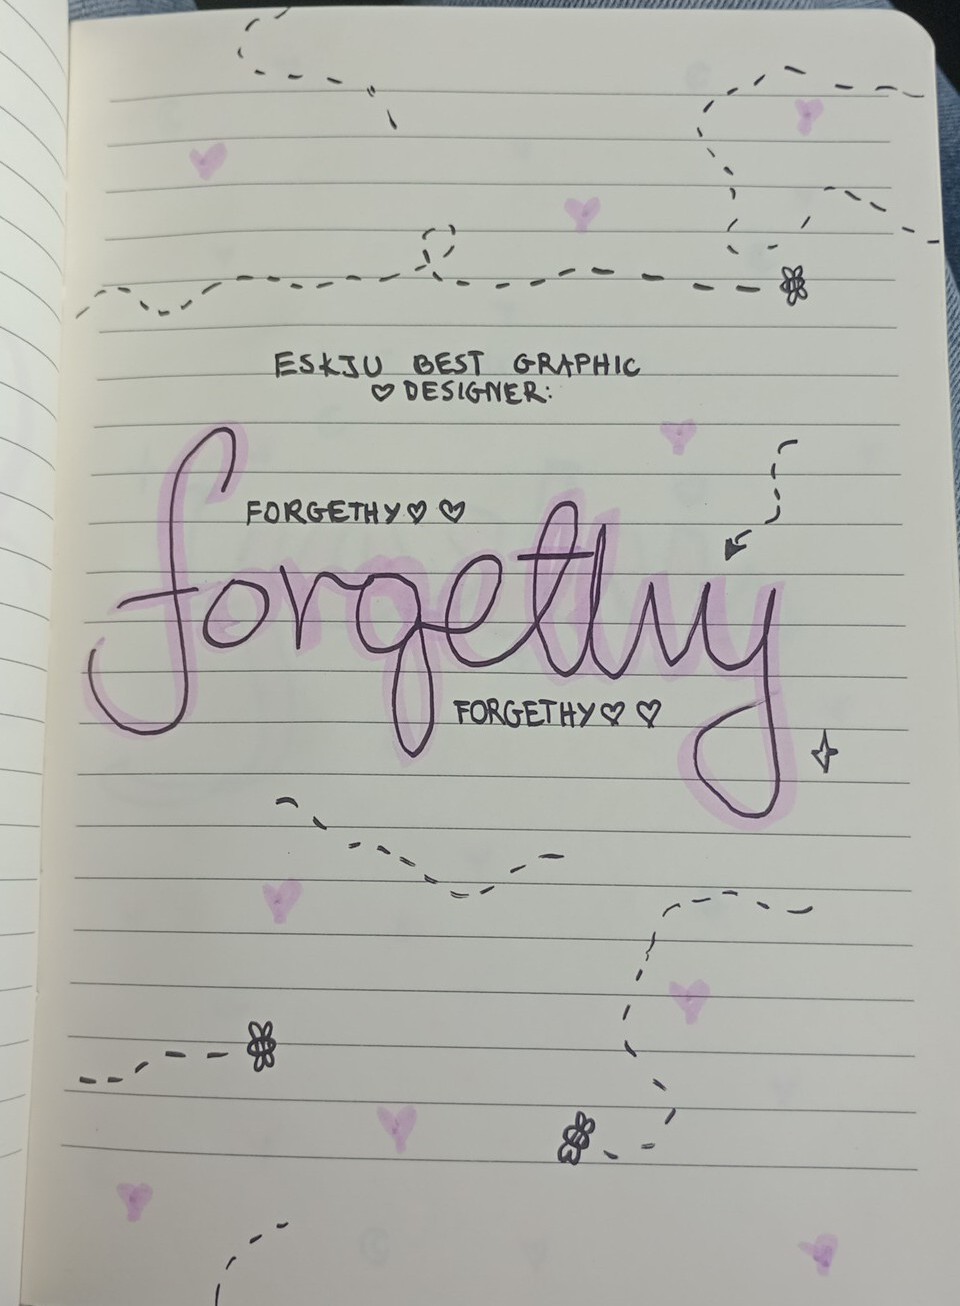 ESKJU BEST GRAPHIC
♡ DESIGNER:
FORGETHY♡ ♡
forgethy
FORGETHY♡ ♡